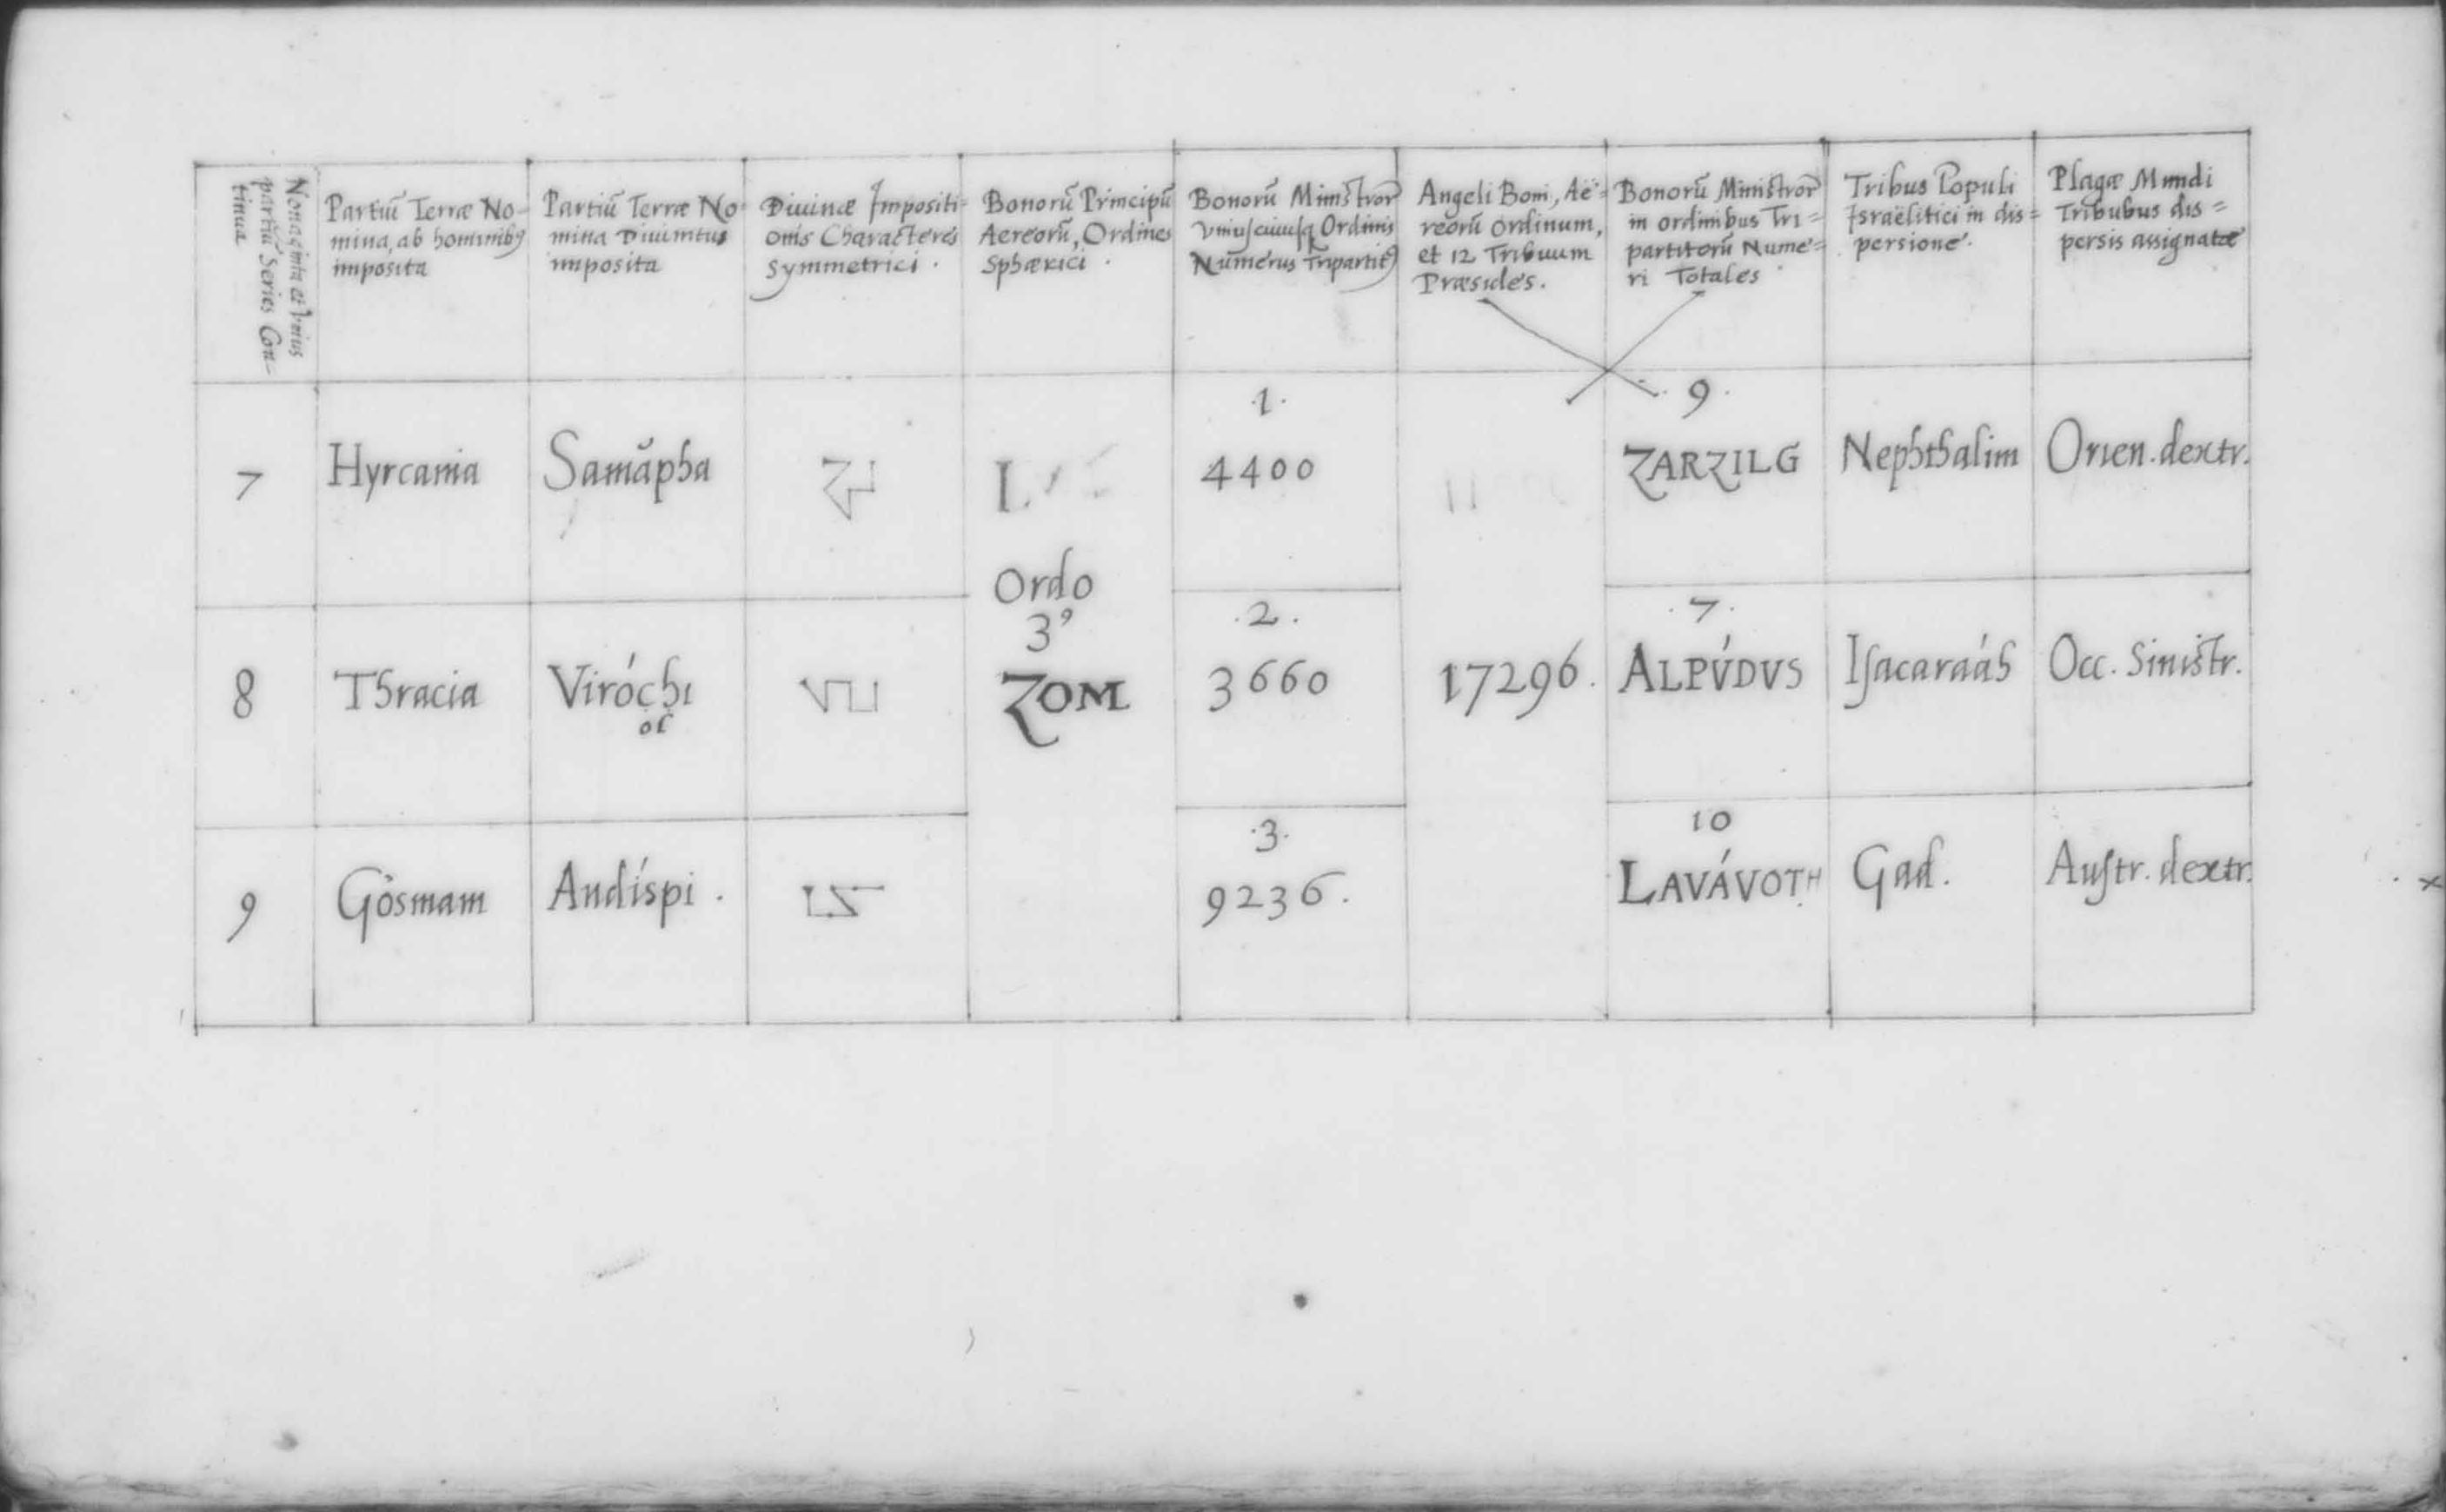 Nonaginta et vnius
partiū Series Con-
tinua
Partiū Terræ No-
mina, ab hominibꝰ
imposita
Partiū Terræ No-
mina Diuinitus
imposita
Diuinæ Impositi-
onis Characteres
Symmetrici.
Bonorū Principū
Aereorū, Ordines
Sphærici.
Bonorū Ministror̄
vniuscuiusq Ordinis
Numerus Tripartitꝰ
Angeli Boni, Aë-
reorū Ordinum,
et 12 Tribuum
Præsides.
Bonorū Ministror̄
in ordinibus Tri=
partitorū Nume=
ri Totales
Tribus Populi
Israëlitici in dis=
persione.
Plagæ Mundi
Tribubus dis=
persis assignatæ
7
Hyrcania
Samăpha
I.
.1.
4400
9.
ZARZILG
Nephthalim
Orien. dextr.
8
Thracia
Viróchi
ol
Ordo
3ꝰ
ZOM
.2.
3660
17296.
.7.
ALPÚDVS
Isacaraáh
Occ. Sinistr.
9
Gosmam
Andíspi.
.3.
9236.
10
LAVÁVOTH
Gad.
Austr. dextr.